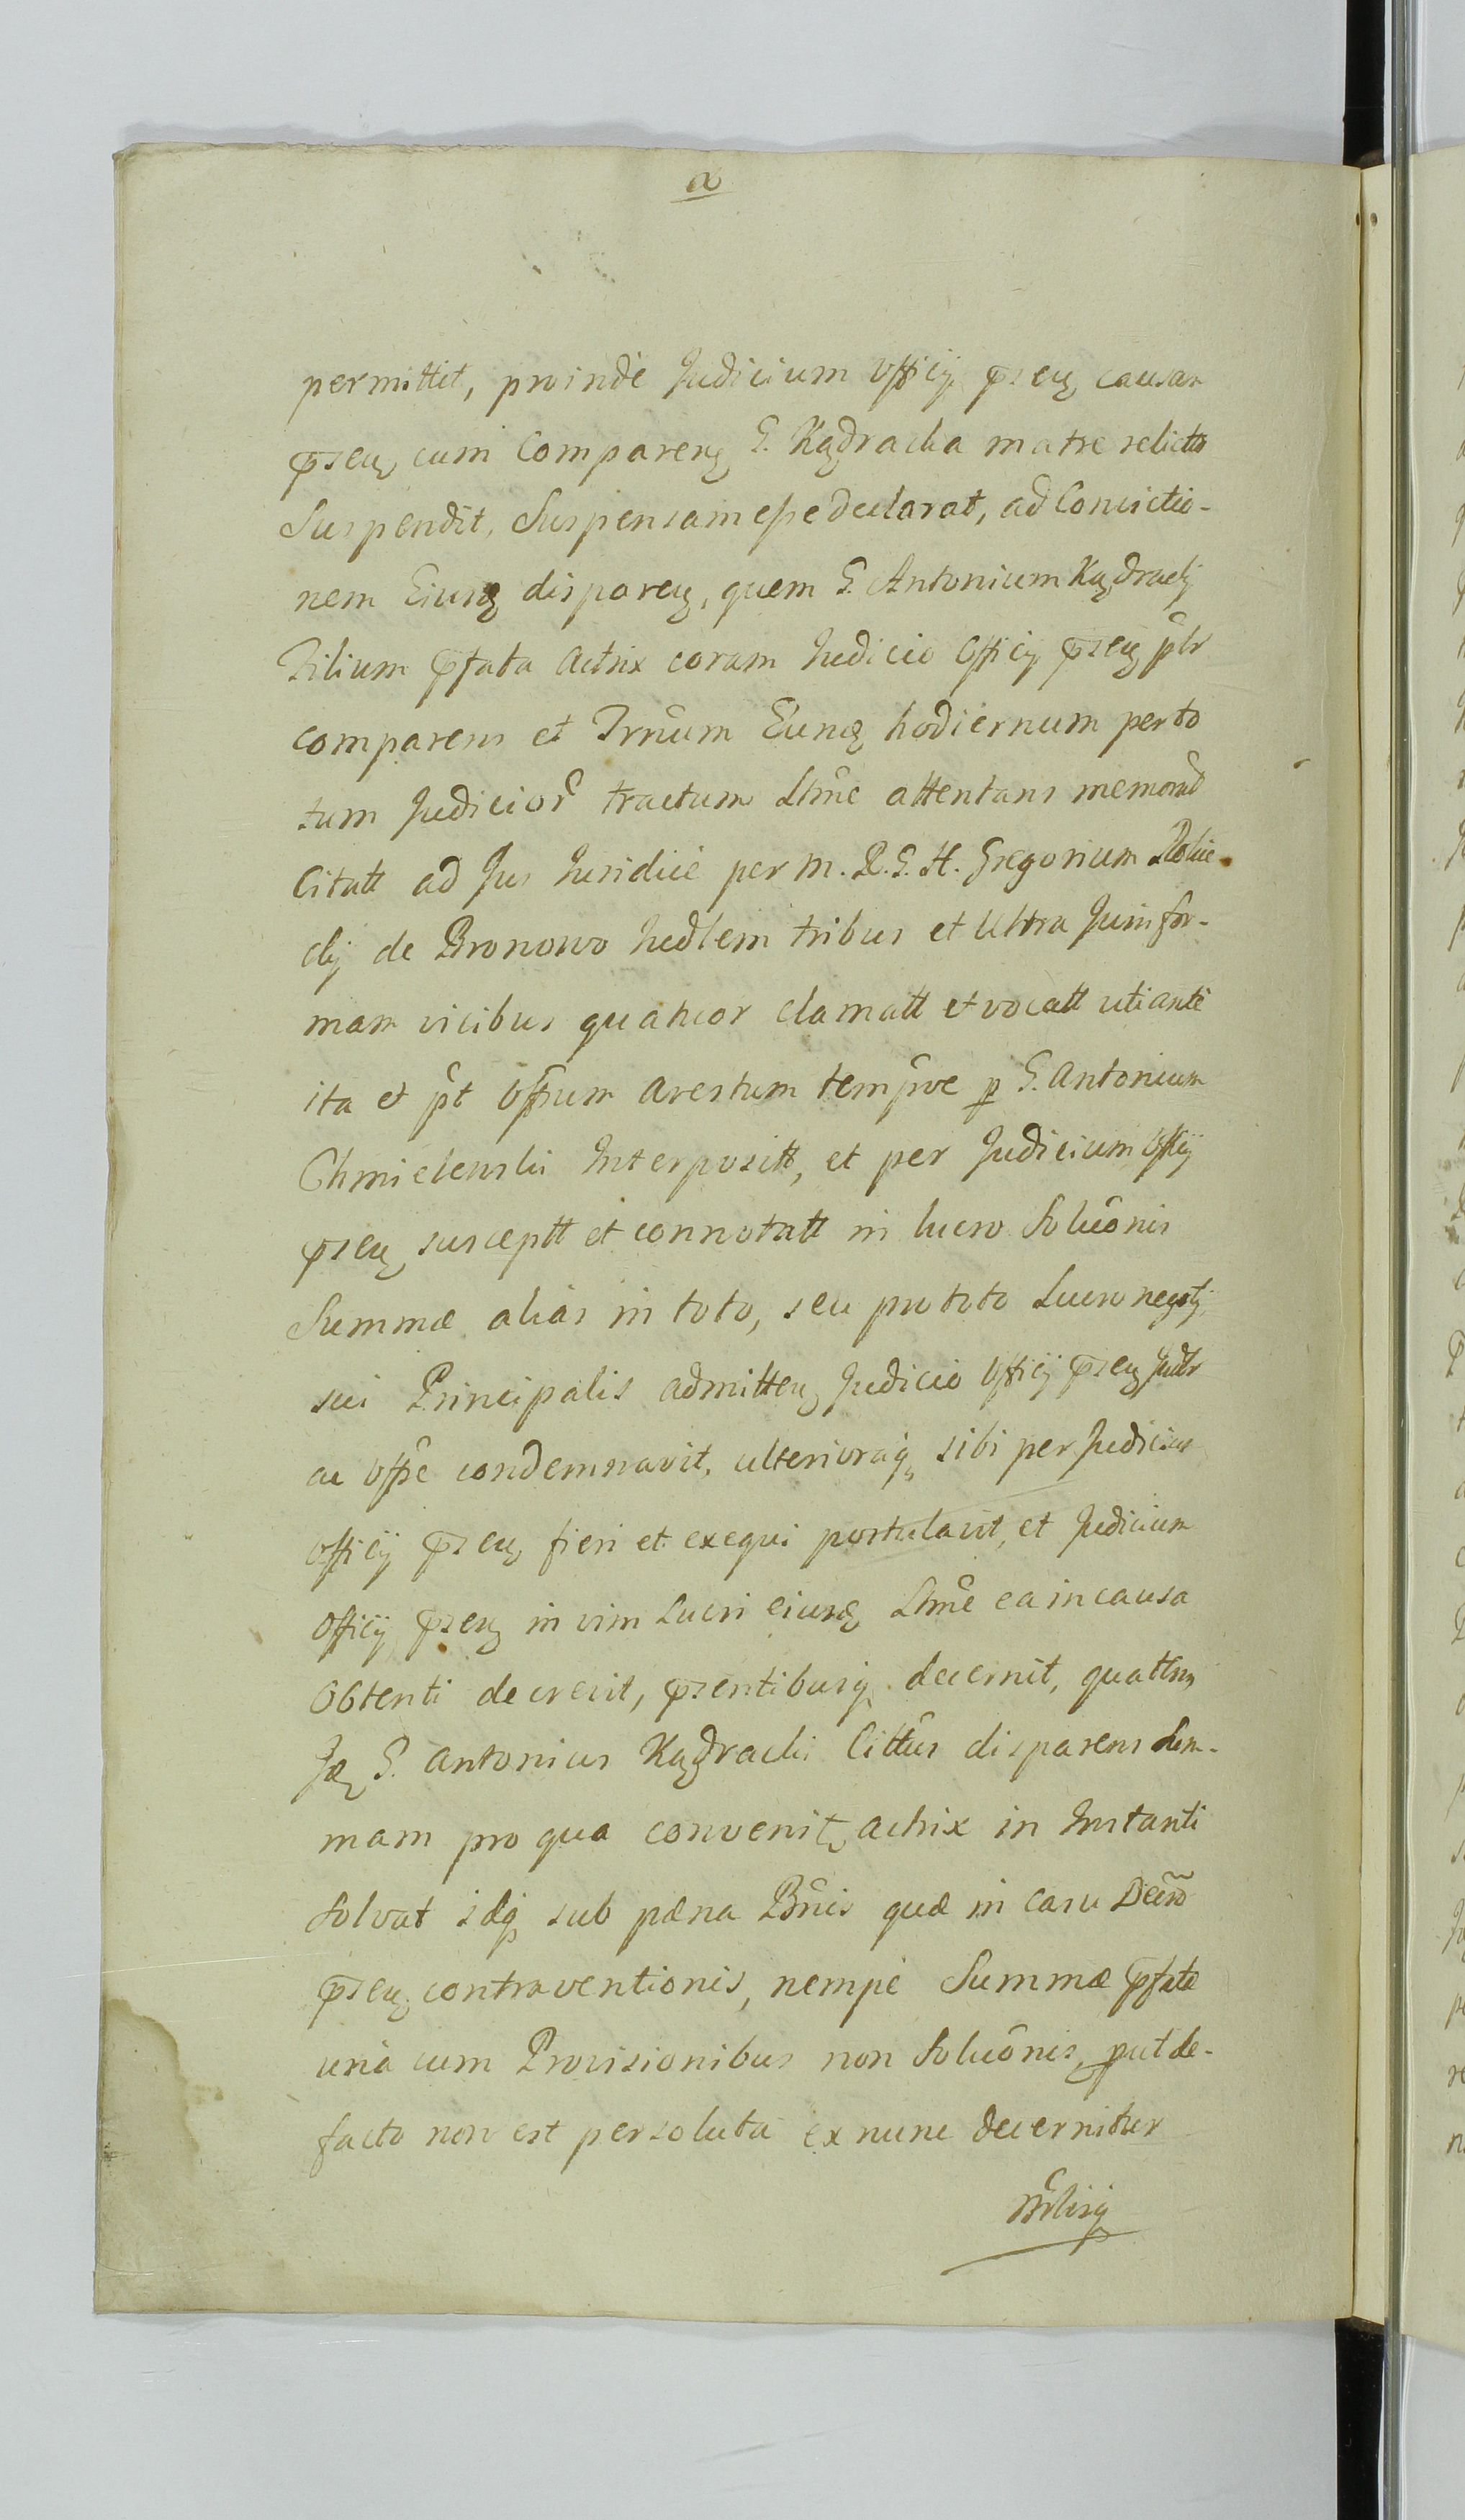 a
permittit, proindè Judicium Officij pñseñ causam
pñseñ cum Compareñ G. Kądracka matre relicta
Suspendit, Suspensam esse declarat, ad Convictio-
nem Eiusq dispareñ, quem G. Antonium Kądracki
Filium pfata Actrix coram Judicio Officij pñseñ plr
comparens et Trñum Eunq hodiernum per to
tum Judicioŕ tractum Lttmè attentans memorat̃
Citatt ad Jus Juridicè per M. R. G. H. Gregorium
cky de Bronowo Judlem tribus et Ultra Juris for-
mam vicibus quatuor clamatt et vocatt uti antè
ita et pt̃ Offsum arestum tempŕe p G. Antonium
Chmielewski Interpositt, et per Judicium Officij
pñseñ susceptt et connotatt in lucro Soluõnis
Summæ aliàs in toto, seu pro toto Lucro negotij
sui Principalis admitteñ Judicio Officij pñseñ Judlr
ac Offsè condemnavit, ulterioraq sibi per Judicium
Officij pñseñ fieri et exequi postulavit, et Judicium
Officij pñseñ in vim Lucri eiusq Lttmè ea in causa
Obtenti decrevit, pñsentibusq decernit, quattñus
G. Antonius Kądracki Cittũs disparens Sum-
mam pro qua convenit actrix in Instanti
Solvat idq sub pæna Bñnis quæ in casu Decr̃o
pñseñ contraventionis, nempè Summæ pfatæ
unà cum Provisionibus non Soluõnis, put de-
facto non est persoluta ex nunc decernitur